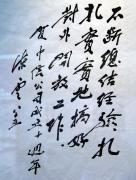 不断总结经验扎
扎实实地搞好
对外开放工作
贺中信公司成立十周年
陈云